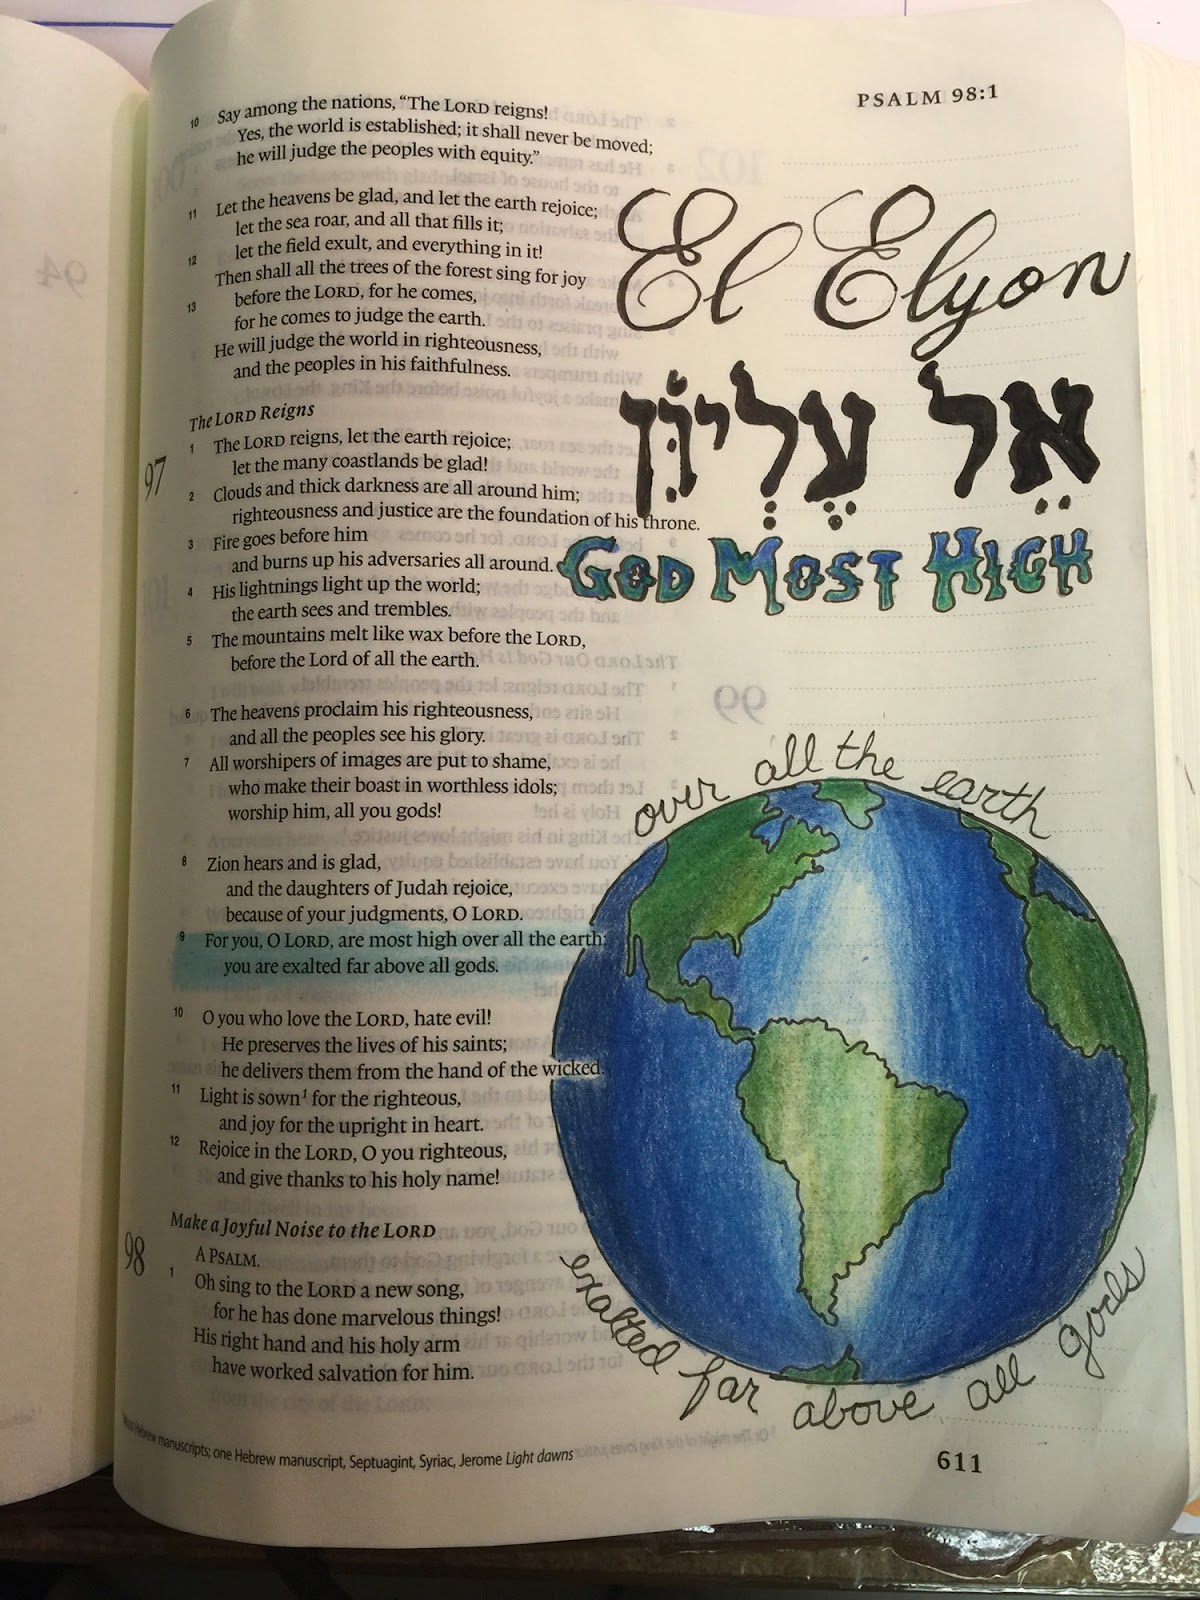 PSALM 98:1
10 Say among the nations, “The LORD reigns!
Yes, the world is established; it shall never be moved;
he will judge the peoples with equity.”
11 Let the heavens be glad, and let the earth rejoice;
let the sea roar, and all that fills it;
12 let the field exult, and everything in it!
Then shall all the trees of the forest sing for joy
13 before the LORD, for he comes,
for he comes to judge the earth.
He will judge the world in righteousness,
and the peoples in his faithfulness.
The LORD Reigns
97
1 The LORD reigns, let the earth rejoice;
let the many coastlands be glad!
2 Clouds and thick darkness are all around him;
righteousness and justice are the foundation of his throne.
3 Fire goes before him
and burns up his adversaries all around.
4 His lightnings light up the world;
the earth sees and trembles.
5 The mountains melt like wax before the LORD,
before the Lord of all the earth.
6 The heavens proclaim his righteousness,
and all the peoples see his glory.
7 All worshipers of images are put to shame,
who make their boast in worthless idols;
worship him, all you gods!
8 Zion hears and is glad,
and the daughters of Judah rejoice,
because of your judgments, O LORD.
9 For you, O LORD, are most high over all the earth;
you are exalted far above all gods.
10 O you who love the LORD, hate evil!
He preserves the lives of his saints;
he delivers them from the hand of the wicked.
11 Light is sown¹ for the righteous,
and joy for the upright in heart.
12 Rejoice in the LORD, O you righteous,
and give thanks to his holy name!
Make a Joyful Noise to the LORD
98
A PSALM.
1 Oh sing to the LORD a new song,
for he has done marvelous things!
His right hand and his holy arm
have worked salvation for him.
Most Hebrew manuscripts; one Hebrew manuscript, Septuagint, Syriac, Jerome Light dawns
El Elyon
אֵל עֶלְיוֹן
GOD MOST HIGH
over all the earth
exalted far above all gods
611